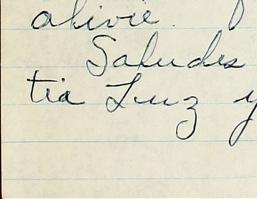 alivie.
Saludes
tia Luz y